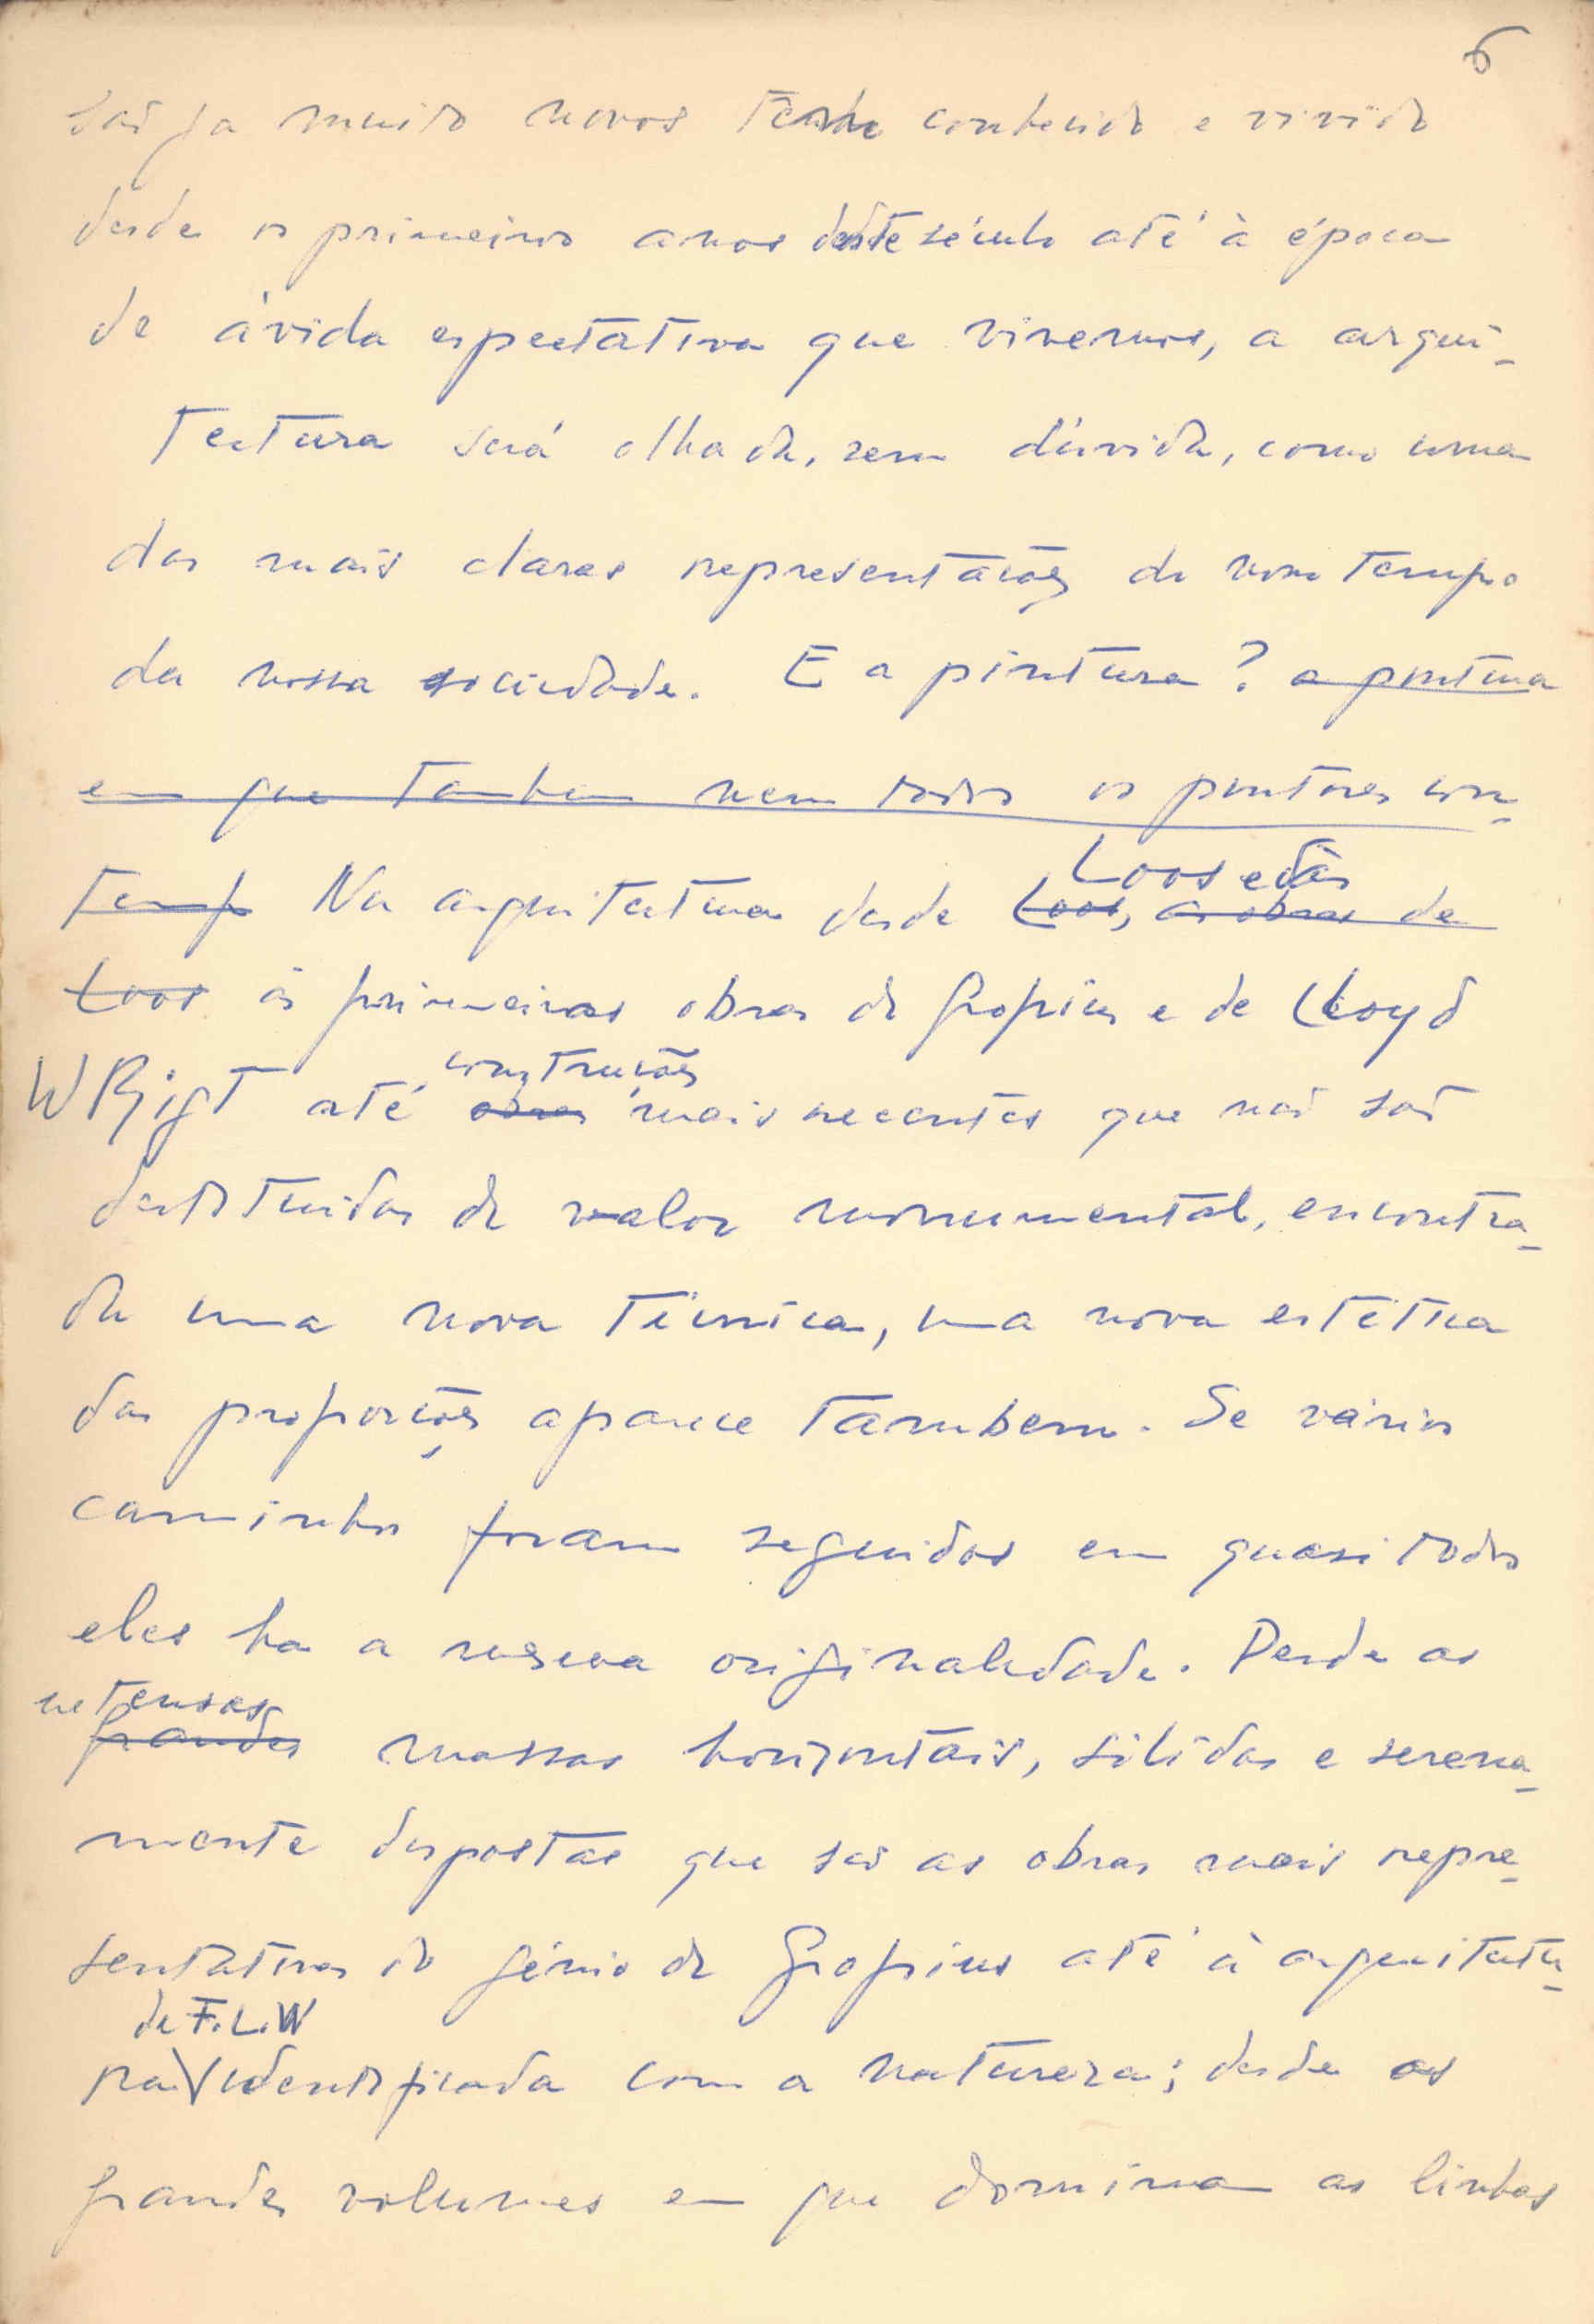 6
são ja muito novos tenho conhecido e vivido
desde os primeiros anos deste século até à época
de ávida espectativa que vivemos, a arqui-
tectura será olhada, sem dúvida, como uma
das mais claras representações do nosso tempo
da nossa sociedade. E a pintura? a pintura
em que tambem nem todos os pintores con-
temp Na arquitectura desde Loos, as obras de
Loos e das
Loos ás primeiras obras de Gropius e de Lloyd
construções
WRigt até obras mais recentes que não são
destituidas de valor monumental, encontra-
da uma nova técnica, uma nova estética
das proporções aparece tambem. Se vários
caminhos foram seguidos em quasi todos
eles ha a mesma originalidade. Desde as
extensas
grandes massas horizontais, sólidas e serena-
mente dispostas que são as obras mais repre-
sentativas do génio de Gropius até à arquitectu-
de F.L.W
ra identificada com a natureza; desde os
grandes volumes em que domina as linhas